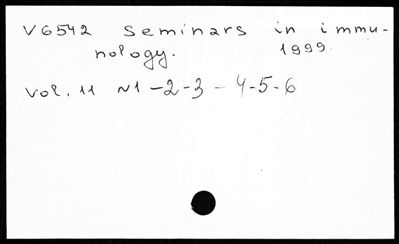 V6542 Seminars in immu-
nology. 1999
Vol. 11 N1-2-3-4-5-6